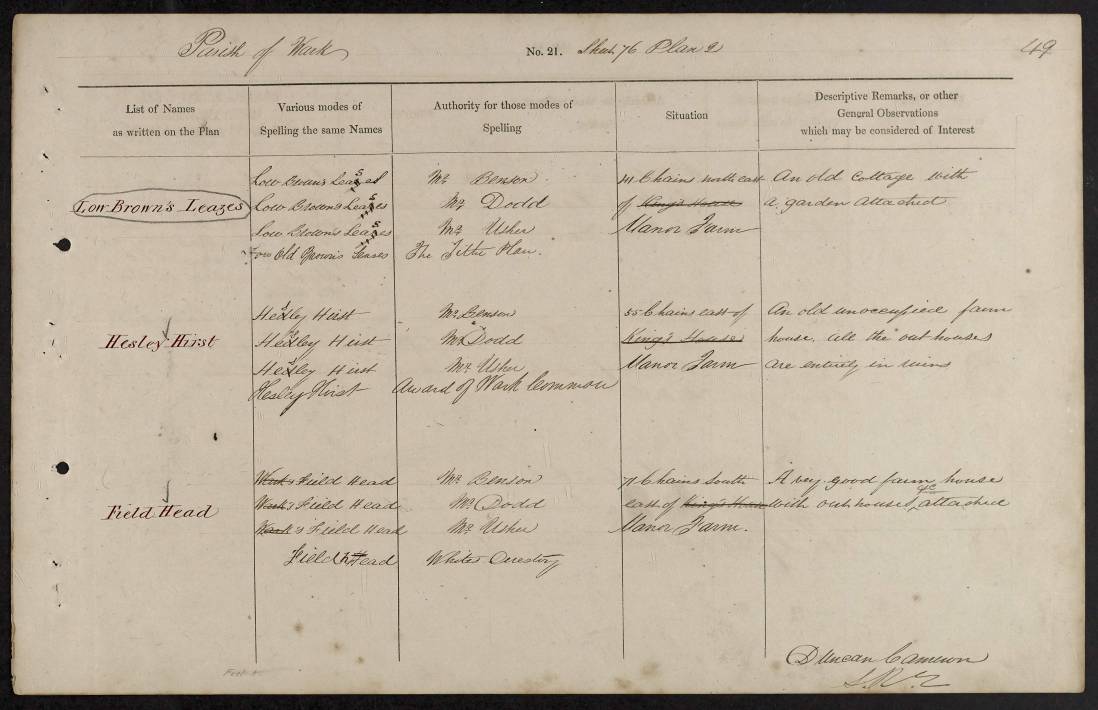 Parish of Wark
No. 21. Sheet 76 Plan 2
49
List of Names
as written on the Plan
Various modes of
Spelling the same Names
Authority for those modes of
Spelling
Situation
Descriptive Remarks, or other
General Observations
which may be considered of Interest
Low Brown's Leazes
Low Brown's Leases
Low Brown's Leases
Low Brown's Leases
Low Old Brown's Leases
Mr. Benson
Mr. Dodd
Mr. Usher
The Tithe Plan.
Chains north east
of King's House
Manor Farm
An old cottage with
a garden attached
Hesley Hirst
Hesley Hirst
Hesley Hirst
Hesley Hirst
Hesley Hirst
Mr. Benson
Mr. Dodd
Mr. Usher
Award of Wark Common
55 Chains east of
King's House
Manor Farm
An old unoccupied farm
house. All the out houses
are entirely in ruins
Field Head
Wark's Field Head
Wark's Field Head
Wark's Field Head
Field Head
Mr. Benson
Mr. Dodd
Mr. Usher
Whites Directory
71 Chains South
east of King's House
Manor Farm.
A very good farm house
with out houses &c attached
Duncan Cameron